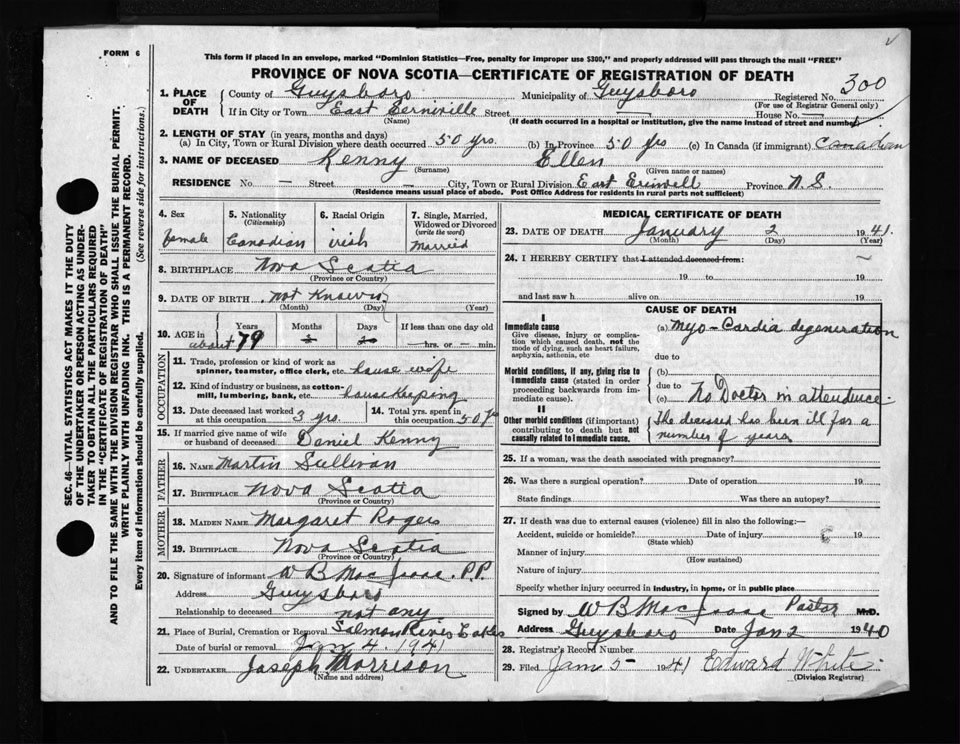 FORM 6
This form if placed in an envelope, marked "Dominion Statistics—Free, penalty for improper use $300," and properly addressed will pass through the mail "FREE"
PROVINCE OF NOVA SCOTIA—CERTIFICATE OF REGISTRATION OF DEATH
300
1. PLACE OF DEATH County of Guysboro Municipality of Guysboro Registered No.
(For use of Registrar General only)
If in City or Town East Erniville Street — House No. —
(Name) (If death occurred in a hospital or institution, give the name instead of street and number)
2. LENGTH OF STAY (in years, months and days)
(a) In City, Town or Rural Division where death occurred 50 yrs. (b) In Province 50 yrs (c) In Canada (if immigrant) Canadian
3. NAME OF DECEASED Kenny Ellen
(Surname) (Given name or names)
RESIDENCE No. — Street — City, Town or Rural Division East Erinvill Province N.S.
(Residence means usual place of abode. Post Office Address for residents in rural parts not sufficient)
4. Sex 5. Nationality (Citizenship) 6. Racial Origin 7. Single, Married, Widowed or Divorced (write the word)
female Canadian irish married
8. BIRTHPLACE Nova Scotia
(Province or Country)
9. DATE OF BIRTH not Known
(Month) (Day) (Year)
10. AGE in Years Months Days If less than one day old
about 79 — hrs. or — min.
OCCUPATION
11. Trade, profession or kind of work as spinner, teamster, office clerk, etc. house wife
12. Kind of industry or business, as cotton-mill, lumbering, bank, etc. house Keeping
13. Date deceased last worked at this occupation 3 yrs. 14. Total yrs. spent in this occupation 50 yrs
15. If married give name of wife or husband of deceased Daniel Kenny
FATHER
16. NAME Martin Sullivan
17. BIRTHPLACE Nova Scotia
(Province or Country)
MOTHER
18. MAIDEN NAME Margaret Rogers
19. BIRTHPLACE Nova Scotia
(Province or Country)
20. Signature of informant W B MacIsaac. P.P.
Address Guysboro
Relationship to deceased not any
21. Place of Burial, Cremation or Removal Salmon River
Date of burial or removal Jan 4. 1941
22. UNDERTAKER Joseph Morrison
(Name and address)
MEDICAL CERTIFICATE OF DEATH
23. DATE OF DEATH January 2 1941.
(Month) (Day) (Year)
24. I HEREBY CERTIFY that I attended deceased from:
19 to 19
and last saw h alive on 19
CAUSE OF DEATH
I
Immediate cause
Give disease, injury or complication which caused death, not the mode of dying, such as heart failure, asphyxia, asthenia, etc
(a) Myo-Cardia degeneration
due to
Morbid conditions, if any, giving rise to immediate cause (stated in order proceeding backwards from immediate cause).
(b)
due to
(c) No Doctor in attendence.
II
Other morbid conditions (if important) contributing to death but not causally related to immediate cause.
The deceased has been ill for a
number of years
25. If a woman, was the death associated with pregnancy?
26. Was there a surgical operation? Date of operation 19
State findings Was there an autopsy?
27. If death was due to external causes (violence) fill in also the following:—
Accident, suicide or homicide? Date of injury 19
(State which)
Manner of injury
(How sustained)
Nature of injury
Specify whether injury occurred in industry, in home, or in public place
Signed by W B MacIsaac Pastor M.D.
Address Guysboro Date Jan 2 1940
28. Registrar's Record Number
29. Filed Jan 5- 1941 Edward White.
(Division Registrar)
SEC. 46—VITAL STATISTICS ACT MAKES IT THE DUTY
OF THE UNDERTAKER OR PERSON ACTING AS UNDER-
TAKER TO OBTAIN ALL THE PARTICULARS REQUIRED
IN THE "CERTIFICATE OF REGISTRATION OF DEATH"
AND TO FILE THE SAME WITH THE DIVISION REGISTRAR WHO SHALL ISSUE THE BURIAL PERMIT.
WRITE PLAINLY WITH UNFADING INK. THIS IS A PERMANENT RECORD.
Every item of information should be carefully supplied. (See reverse side for instructions.)